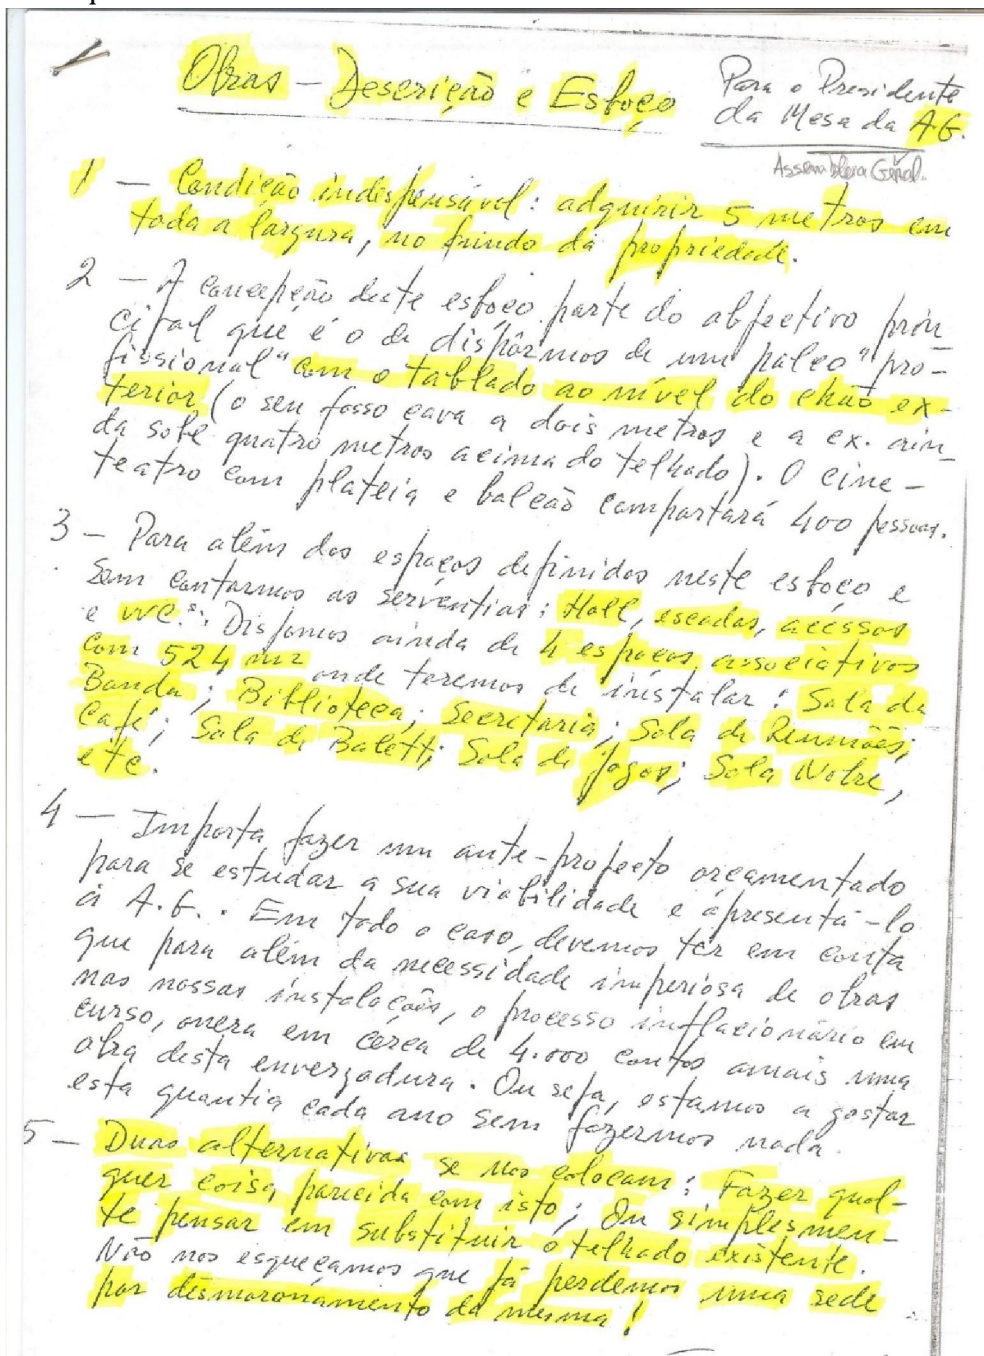 Obras – Descrição e Esboço
Para o Presidente
da Mesa da A.G.
Assembleia Geral.
1 – Condição indispensável: adquirir 5 metros em
toda a largura, no fundo da propriedade.
2 – A concepção deste esboço parte do objectivo prin
cipal que é o de dispôrmos de um palco "pro-
fissional" com o tablado ao nível do chão ex-
terior (o seu fosso cava a dois metros e a ex. ain_
da sobe quatro metros acima do telhado). O cine-
teatro com plateia e balcão comportará 400 pessoas.
3 – Para além dos espaços definidos neste esboço e
sem contarmos as serventias: Hall, escadas, acessos
e WC.s: Dispomos ainda de 4 espaços associativos
com 524 m2 onde teremos de instalar: Sala da
Banda; Biblioteca; Secretaria; Sala de Reuniões;
Café; Sala de Balett; Sala de jogos; Sala Nobre,
etc.
4 – Importa fazer um ante-projecto orçamentado
para se estudar a sua viabilidade e apresentá-lo
à A.G.. Em todo o caso, devemos ter em conta
que para além da necessidade imperiosa de obras
nas nossas instalações, o processo inflacionário em
curso, onera em cêrca de 4.000 contos anuais uma
obra desta envergadura. Ou seja, estamos a gastar
esta quantia cada ano sem fazermos nada.
5 – Duas alternativas se nos colocam: Fazer qual-
quer coisa parecida com isto; Ou simplesmen-
te pensar em substituir o telhado existente.
Não nos esqueçamos que já perdemos uma sede
por desmoronamento da mesma!